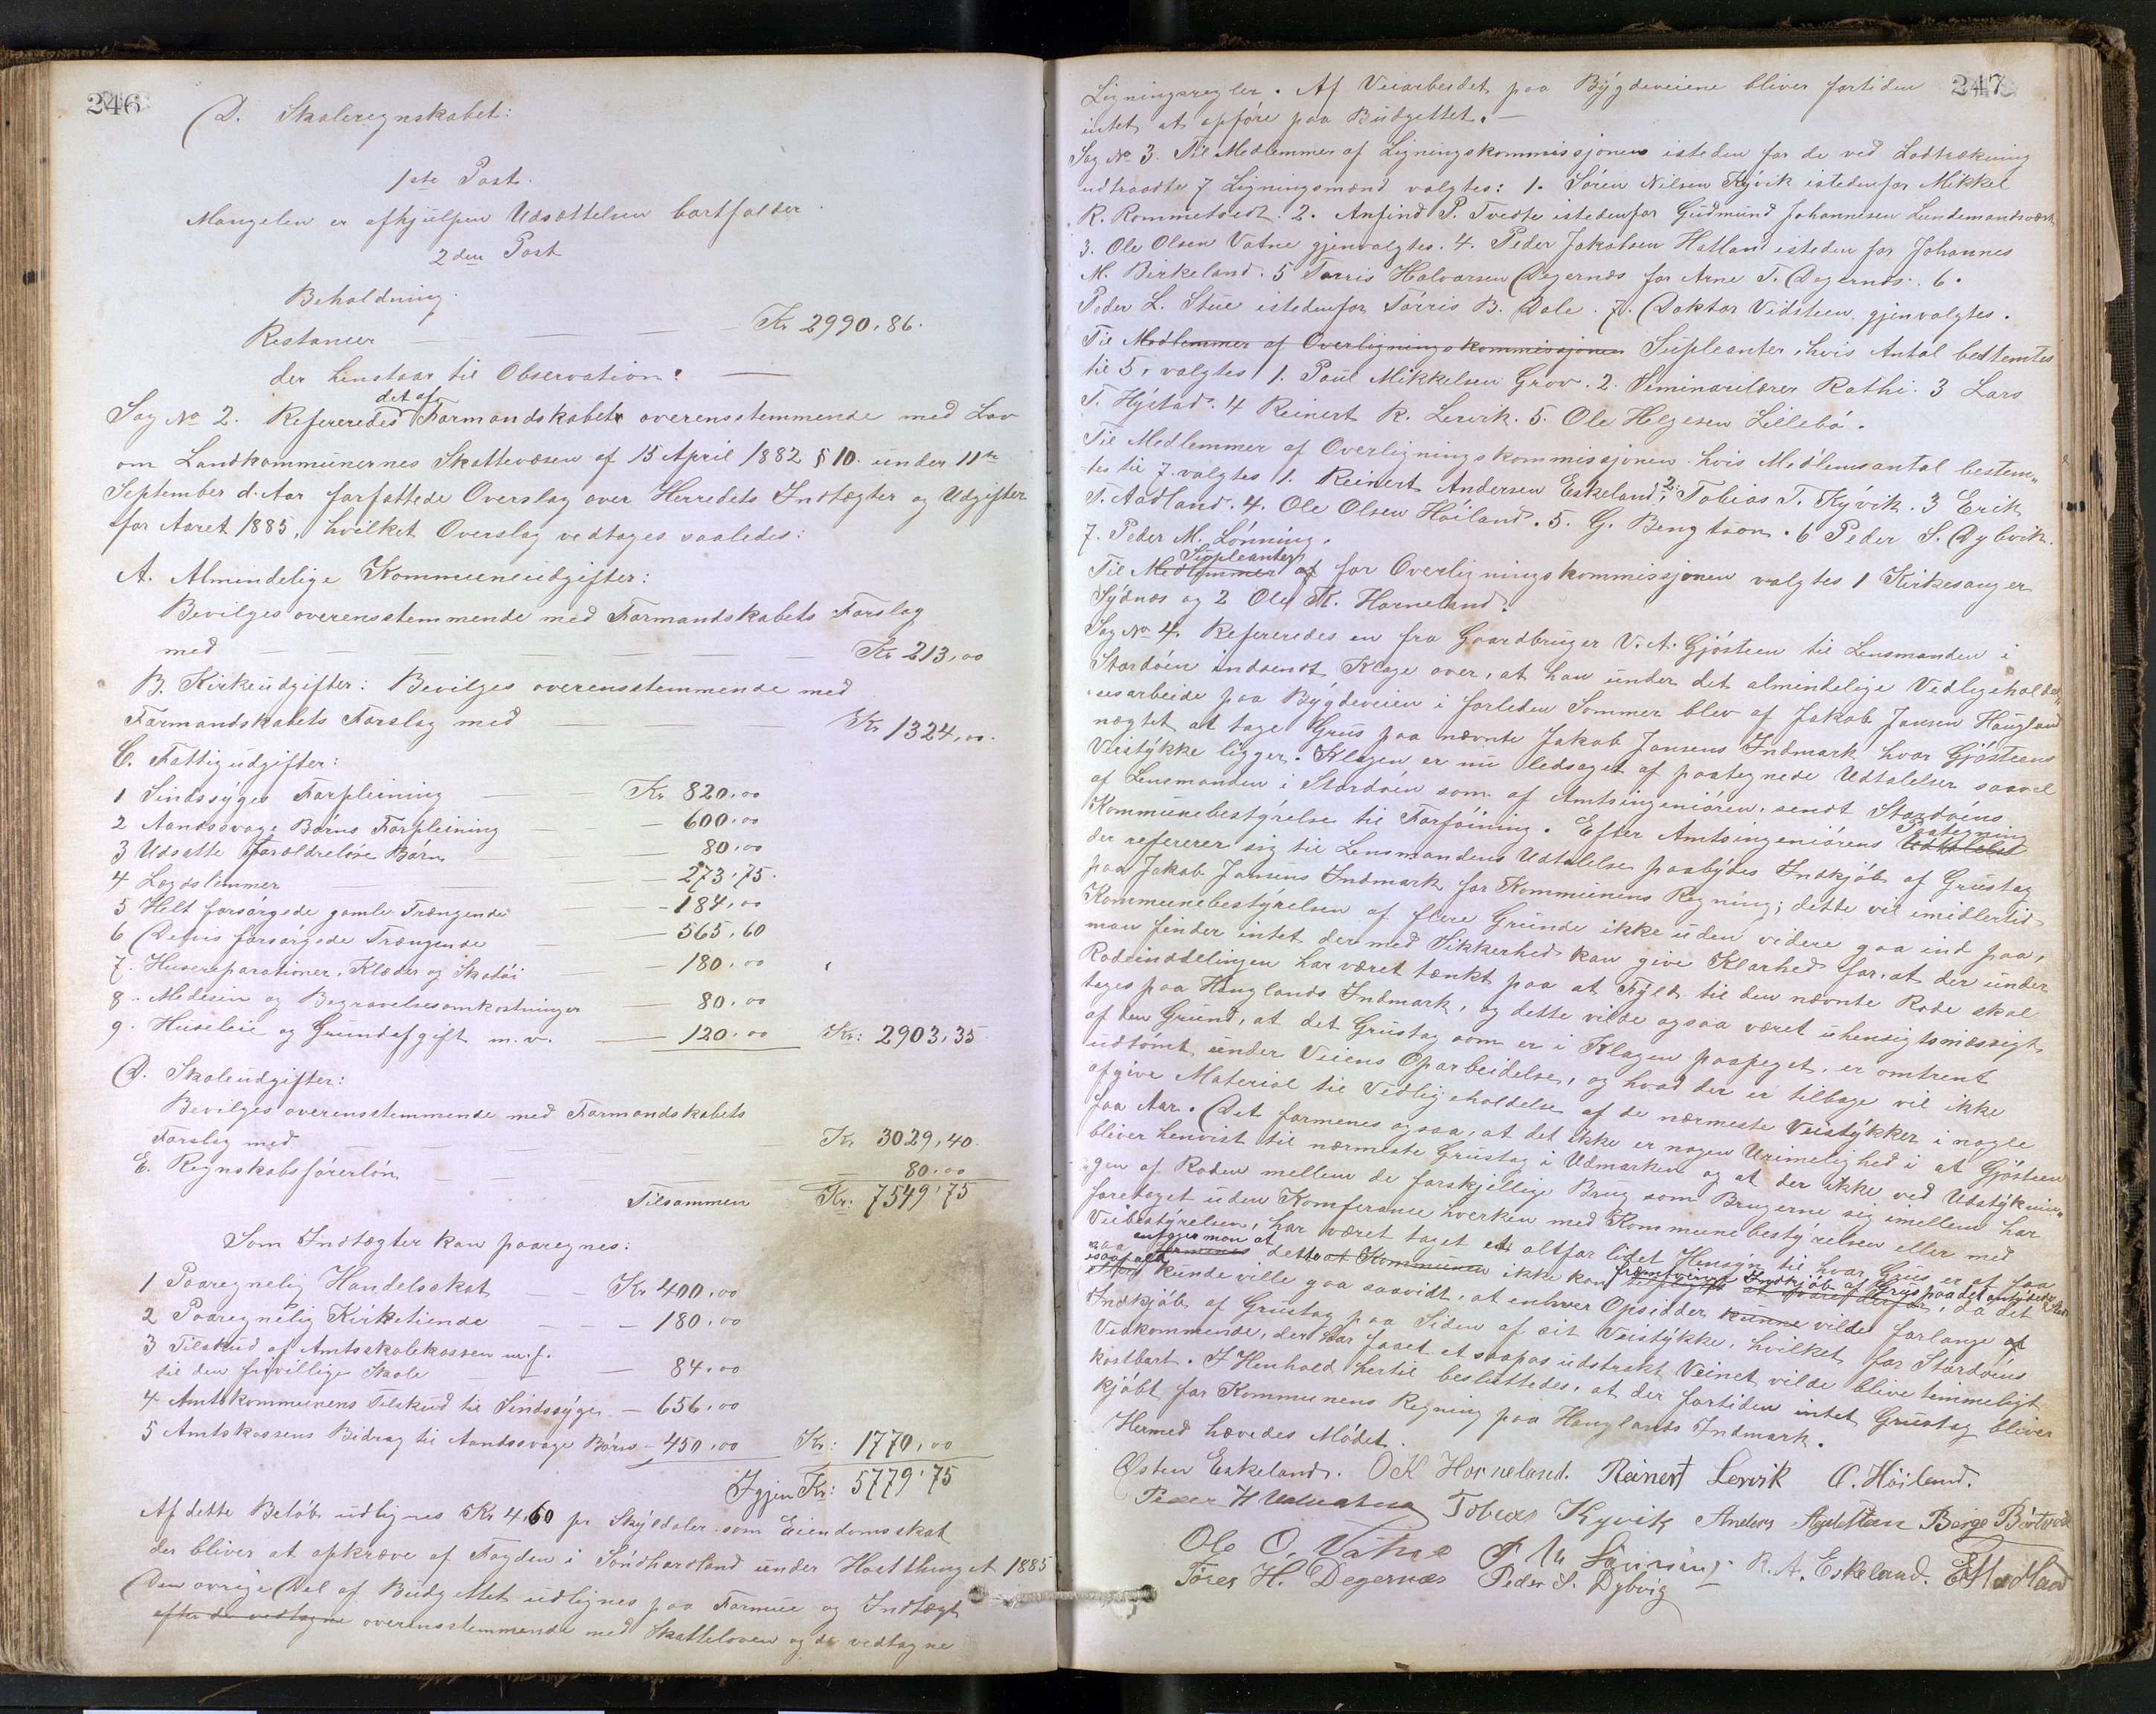 246
D. Skoleregnskabet:
1ste Post.
Mangelen er afhjulpen Udsættelsen bortfalder.
2den Post
Beholdning.
Restancer — — — Kr 2990,86.
der henstaar til Observation: —
det af
Sag No 2. Refereredes Formandskabet overensstemmende med Lov
om Landkommunernes Skattevæsen af 15 April 1882 § 10. under 11te
September d. Aar forfattede Overslag over Herredets Indtægter og Udgifter
for Aaret 1885, hvilket Overslag vedtages saaledes:
A. Almindelige Kommuneudgifter:
Bevilges overensstemmende med Formandskabets Forslag
med — — — — — Kr 213,00
B. Kirkeudgifter: Bevilges overensstemmende med
Formandskabets Forslag med — — Kr 1324,00.
C. Fattigudgifter:
1 Sindssýges Forpleining — — Kr 820,00
2 Aandssvage Börns Forpleining — — 600,00
3 Udsatte Forældrelöse Börn — — 80,00
4 Lægdslemmer — — — 273,75.
5 Helt forsörgede gamle Trængende — — 184,00
6 Delvis forsörgede Trængende — — 565,60
7. Husereparationer, Klæder og Skotöi — — 180,00
8. Medesin og Begravelsesomkostninger — 80,00
9. Huseleie og Grundafgift m.v. — 120,00 Kr: 2903,35
D. Skoleudgifter:
Bevilges overensstemmende med Formandskabets
Forslag med — — — — Kr 3029,40.
E. Regnskabsförerlön — — 80,00
Tilsammen Kr: 7549,75
Som Indtægter kan paaregnes:
1 Paaregnelig Handelsskat — — Kr 400,00
2 Paaregnelig Kirketiende — — — 180,00
3 Tilskud af Amtsskolekassen m.f.
til den frivillige Skole — — — 84,00
4 Amtskommunens Tilskud til Sindssýge — 656,00
5 Amtskassens Bidrag til Aandssvage Börn - 450,00 Kr: 1770,00
Igjen Kr: 5779,75
Af dette Belöb udlignes Kr 4,60 pr Skýlddaler som Eiendomsskat
der bliver at opkræve af Fogden i Söndhordland under Hostthinget 1885
Den övrige Del af Budgettet udlignes paa Formue og Indtægt
efter de vedtagne overensstemmende med Skatteloven og de vedtagne
247
Ligningsregler. Af Veiarbeidet paa Býgdeveiene bliver fortiden
intet at opföre paa Budgettet. —
Sag No 3. Til Medlemmer af Ligningskommissjonen isteden for de ved Lodtrækning
udtraadte 7 Ligningsmænd valgtes: 1. Sören Nilsen Kývik istedenfor Mikkel
R. Rommetvedt. 2. Anfind P. Tvedte istedenfor Gudmund Johannesen Lundemandsværk
3. Ole Olsen Vatne gjenvalgtes. 4. Peder Jakobsen Hatland isteden for Johannes
M. Birkeland. 5 Torris Halvorsen Degernæs for Arne T. Degernæs. 6.
Peder L. Stue istedenfor Törris B. Dale. 7. Doktor Vidsteen gjenvalgtes.
Til Medlemmer af Overligningskommissjonen Supleanter, hvis Antal bestemtes
til 5, valgtes 1. Poul Mikkelsen Grov. 2. Seminarilærer Rathi. 3 Lars
T. Hýstad. 4 Reinert R. Lervik. 5. Ole Helgesen Lillebö.
Til Medlemmer af Overligningskommissjonen hvis Medlemsantal bestem„
tes til 7. valgtes 1. Reinert Andersen Eskeland, 2. Tobias T. Kývik. 3 Erik
T. Aadland. 4. Ole Olsen Höiland. 5. G. Bengtson. 6 Peder S. Dybvik.
7. Peder M. Lönning.
Supleanter
Til Medlemmer af for Overligningskommissjonen valgtes 1 Kirkesanger
Sydnæs og 2 Ole K. Horneland.
Sag No 4. Refereredes en fra Gaardbruger V. A. Gjösteen til Lensmanden i
Stordöen indsendt Klage over, at han under det almindelige Vedligeholdel„
sesarbeide paa Býgdeveien i forleden Sommer blev af Jakob Jansen Haugland
nægtet at tage Grus paa nævnte Jakob Jansens Indmark hvor Gjösteens
Veistýkke ligger. Klagen er nu ledsaget af paategnede Udtalelser saavel
af Lensmanden i Stordöen som af Amtsingeniören, sendt Stordöens
Kommunebestýrelse til Forföining. Efter Amtsingeniörens Udtalelse Paategning
der refererer sig til Lensmandens Udtalelse paabýdes Indkjöb af Grustag
paa Jakob Jansens Indmark for Kommunens Regning; dette vil imidlertid
Kommunebestýrelsen af flere Grunde ikke uden videre gaa ind paa,
man finder intet der med Sikkerhed kan give Klarhed for, at der under
Rodeinddelingen har været tænkt paa at Fýld til den nævnte Rode skal
tages paa Hauglands Indmark, og dette vilde ogsaa været uhensigtsmæssigt
af den Grund, at det Grustag som er i Klagen paapeget, er omtrent
udtömt under Veiens Oparbeidelse, og hvad der er tilbage vil ikke
afgive Material til Vedligeholdelse af de nærmeste Veistýkker i nogle
faa Aar. Det formenes ogsaa, at det ikke er nogen Urimelighed i at Gjösteen
bliver henvist til nærmeste Grustag i Udmarken og at der ikke ved Udstýknin„
gen af Roden mellem de forskjellige Brug som Brugerne sig imellem har
foretaget uden Komferanse hverken med Kommunebestýrelsen eller med
Veibestýrelsen, har været taget et altfor lidet Hensýn til hvor Grus er at faa
antager man at
formenes dette at Kommunen ikke kan fremtvinge Indkjöb af Grus paa det antýdede Sted
kunde ville gaa saavidt, at enhver Opsidder kunne vilde forlange af
Indkjöb af Grustag paa Siden af sit Veistýkke, hvilket for Stordöens
Vedkommende, der har faaet et saapas udstrakt Veinet vilde blive temmeligt
kostbart. I Henhold hertil besluttedes, at der fortiden intet Grustag bliver
kjöbt for Kommunens Regning paa Hauglands Indmark.
Hermed hævedes Mödet.
Østen Eskeland. O K Horneland. Reinert Lervik O. Höiland.
Peder H Tobias Kyvik Anders Børge
Ole O. Vatne P. M. Lönning R. A. Eskeland. E T Aadland
Tores H. Degernæs Peder S. Dybvig